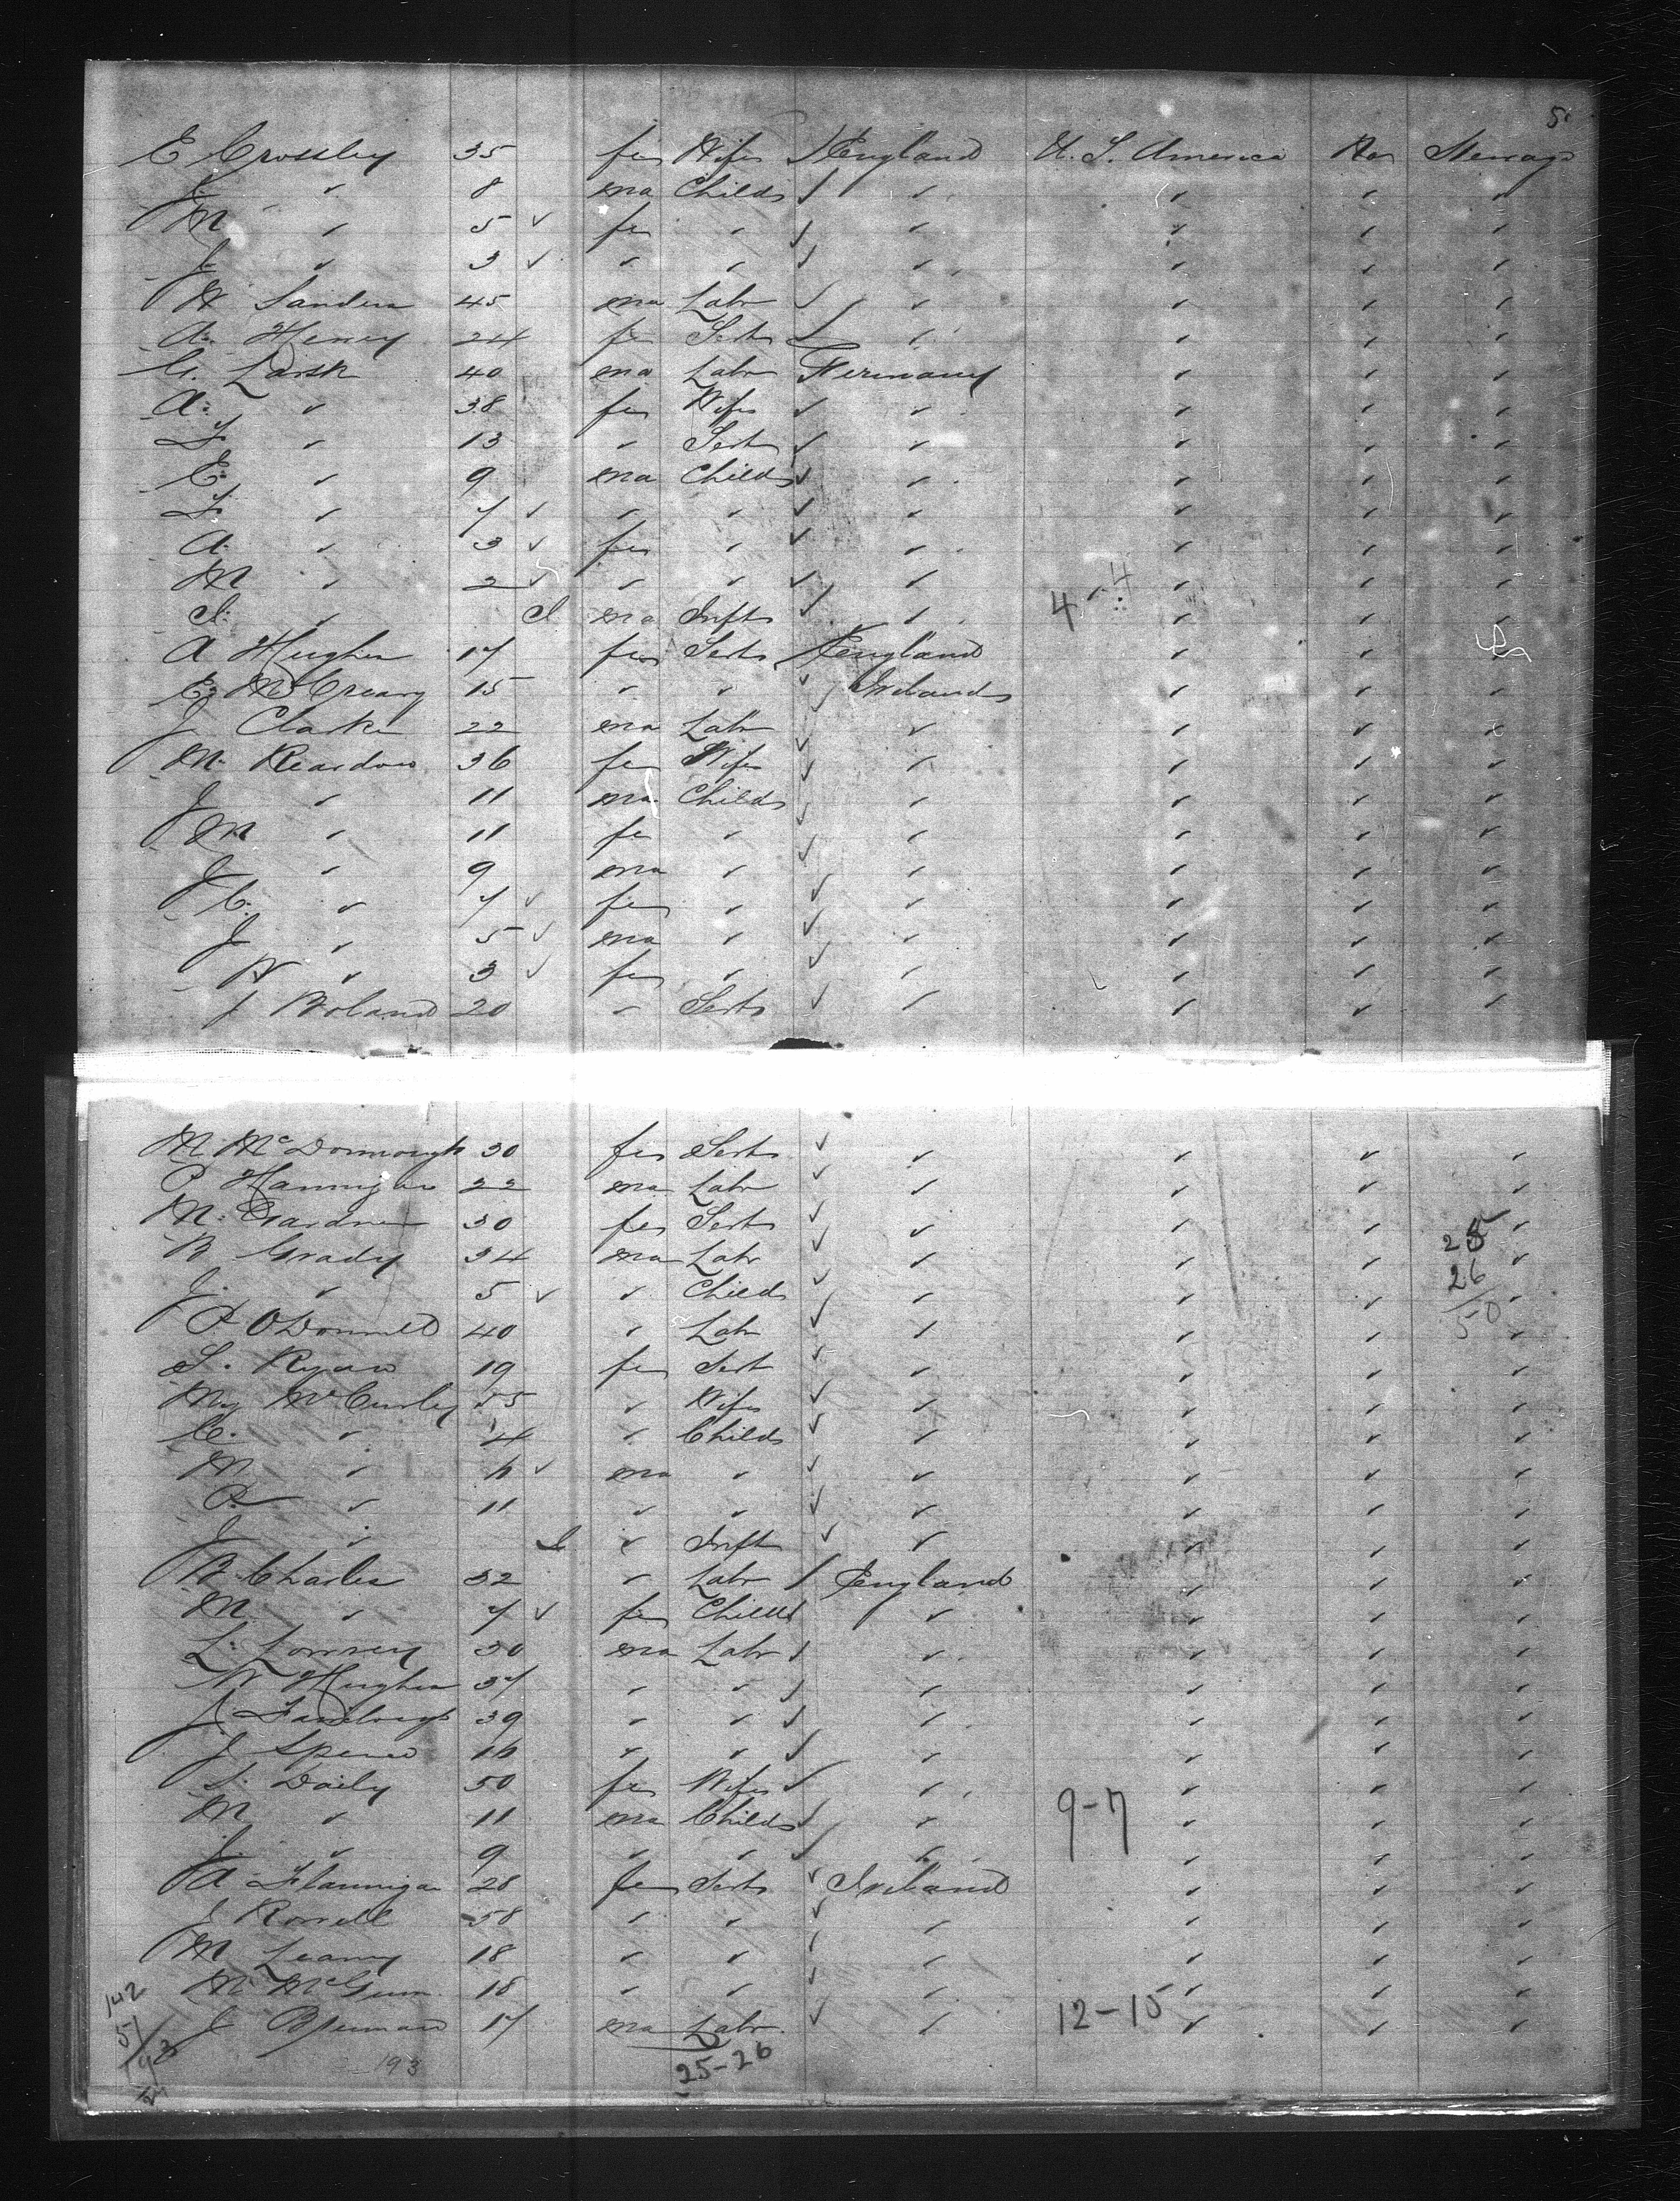 5
E Crossley 35 fe Wife / England U. S. America Non Steerage
J " 8 ma Child / " " " "
M " 5 ✓ fe " / " " " "
J " 3 ✓ " " / " " " "
W Sanders 45 ma Labr / " " " "
A. Henry 24 fe Sert / " " " "
G. Larsh 40 ma Labr Germany " " "
A. " 38 fe Wife ✓ " " " "
F " 13 " Sert ✓ " " " "
E. " 9 ma Child ✓ " " " "
F " 7 ✓ " " ✓ " " " "
A. " 3 ✓ fe " ✓ " " " "
M " 2 ✓ " " ✓ " " " "
S. " I ma Inft ✓ " 4 - 4 " " "
A Hughes 17 fe Sert / England " " "
E. McCreary 15 " " ✓ Ireland " " "
J Clarke 22 ma Labr ✓ " " " "
M. Reardon 36 fe Wife ✓ " " " "
J " 11 ma Child ✓ " " " "
M " 11 fe " ✓ " " " "
J " 9 ma " ✓ " " " "
C. " 7 ✓ fe " ✓ " " " "
J " 5 ✓ ma " ✓ " " " "
N " 3 ✓ fe " ✓ " " " "
J Boland 20 " Sert ✓ " " " "
M McDonnough 30 fe Sert ✓ " " " "
P Hannigan 22 ma Labr ✓ " " " "
M. Gardner 30 fe Sert ✓ " " " "
B Grady 34 ma Labr ✓ " " " 25 "
J. " 5 ✓ " Child ✓ " " " 26 "
P ODonnell 40 " Labr ✓ " " " 50 "
S. Ryan 19 fe Sert ✓ " " " "
My McCurley 35 " Wife ✓ " " " "
C. " 4 " Child ✓ " " " "
M " 6 ✓ ma " ✓ " " " "
P. " 11 " " ✓ " " " "
J " I " Inft ✓ " " " "
B Charles 32 " Labr / England " " "
M " 7 ✓ fe Child / " " " "
L. Lowrey 30 ma Labr / " " " "
W Hughes 37 " " / " " " "
J 39 " " / " " " "
J Spence 16 " " / " " " "
S. Daily 50 fe Wife / " " " "
M " 11 ma Child / " 9-7 " " "
J. " 9 " " / " " " "
A Flannigan 28 fe Sert ✓ Ireland " " "
J 58 " " ✓ " " " "
M Leamy 18 " " ✓ " " " "
M McGunn 18 " " ✓ " " " "
J 17 ma Labr ✓ " 12-15 " " "
142
51
193
193
25-26